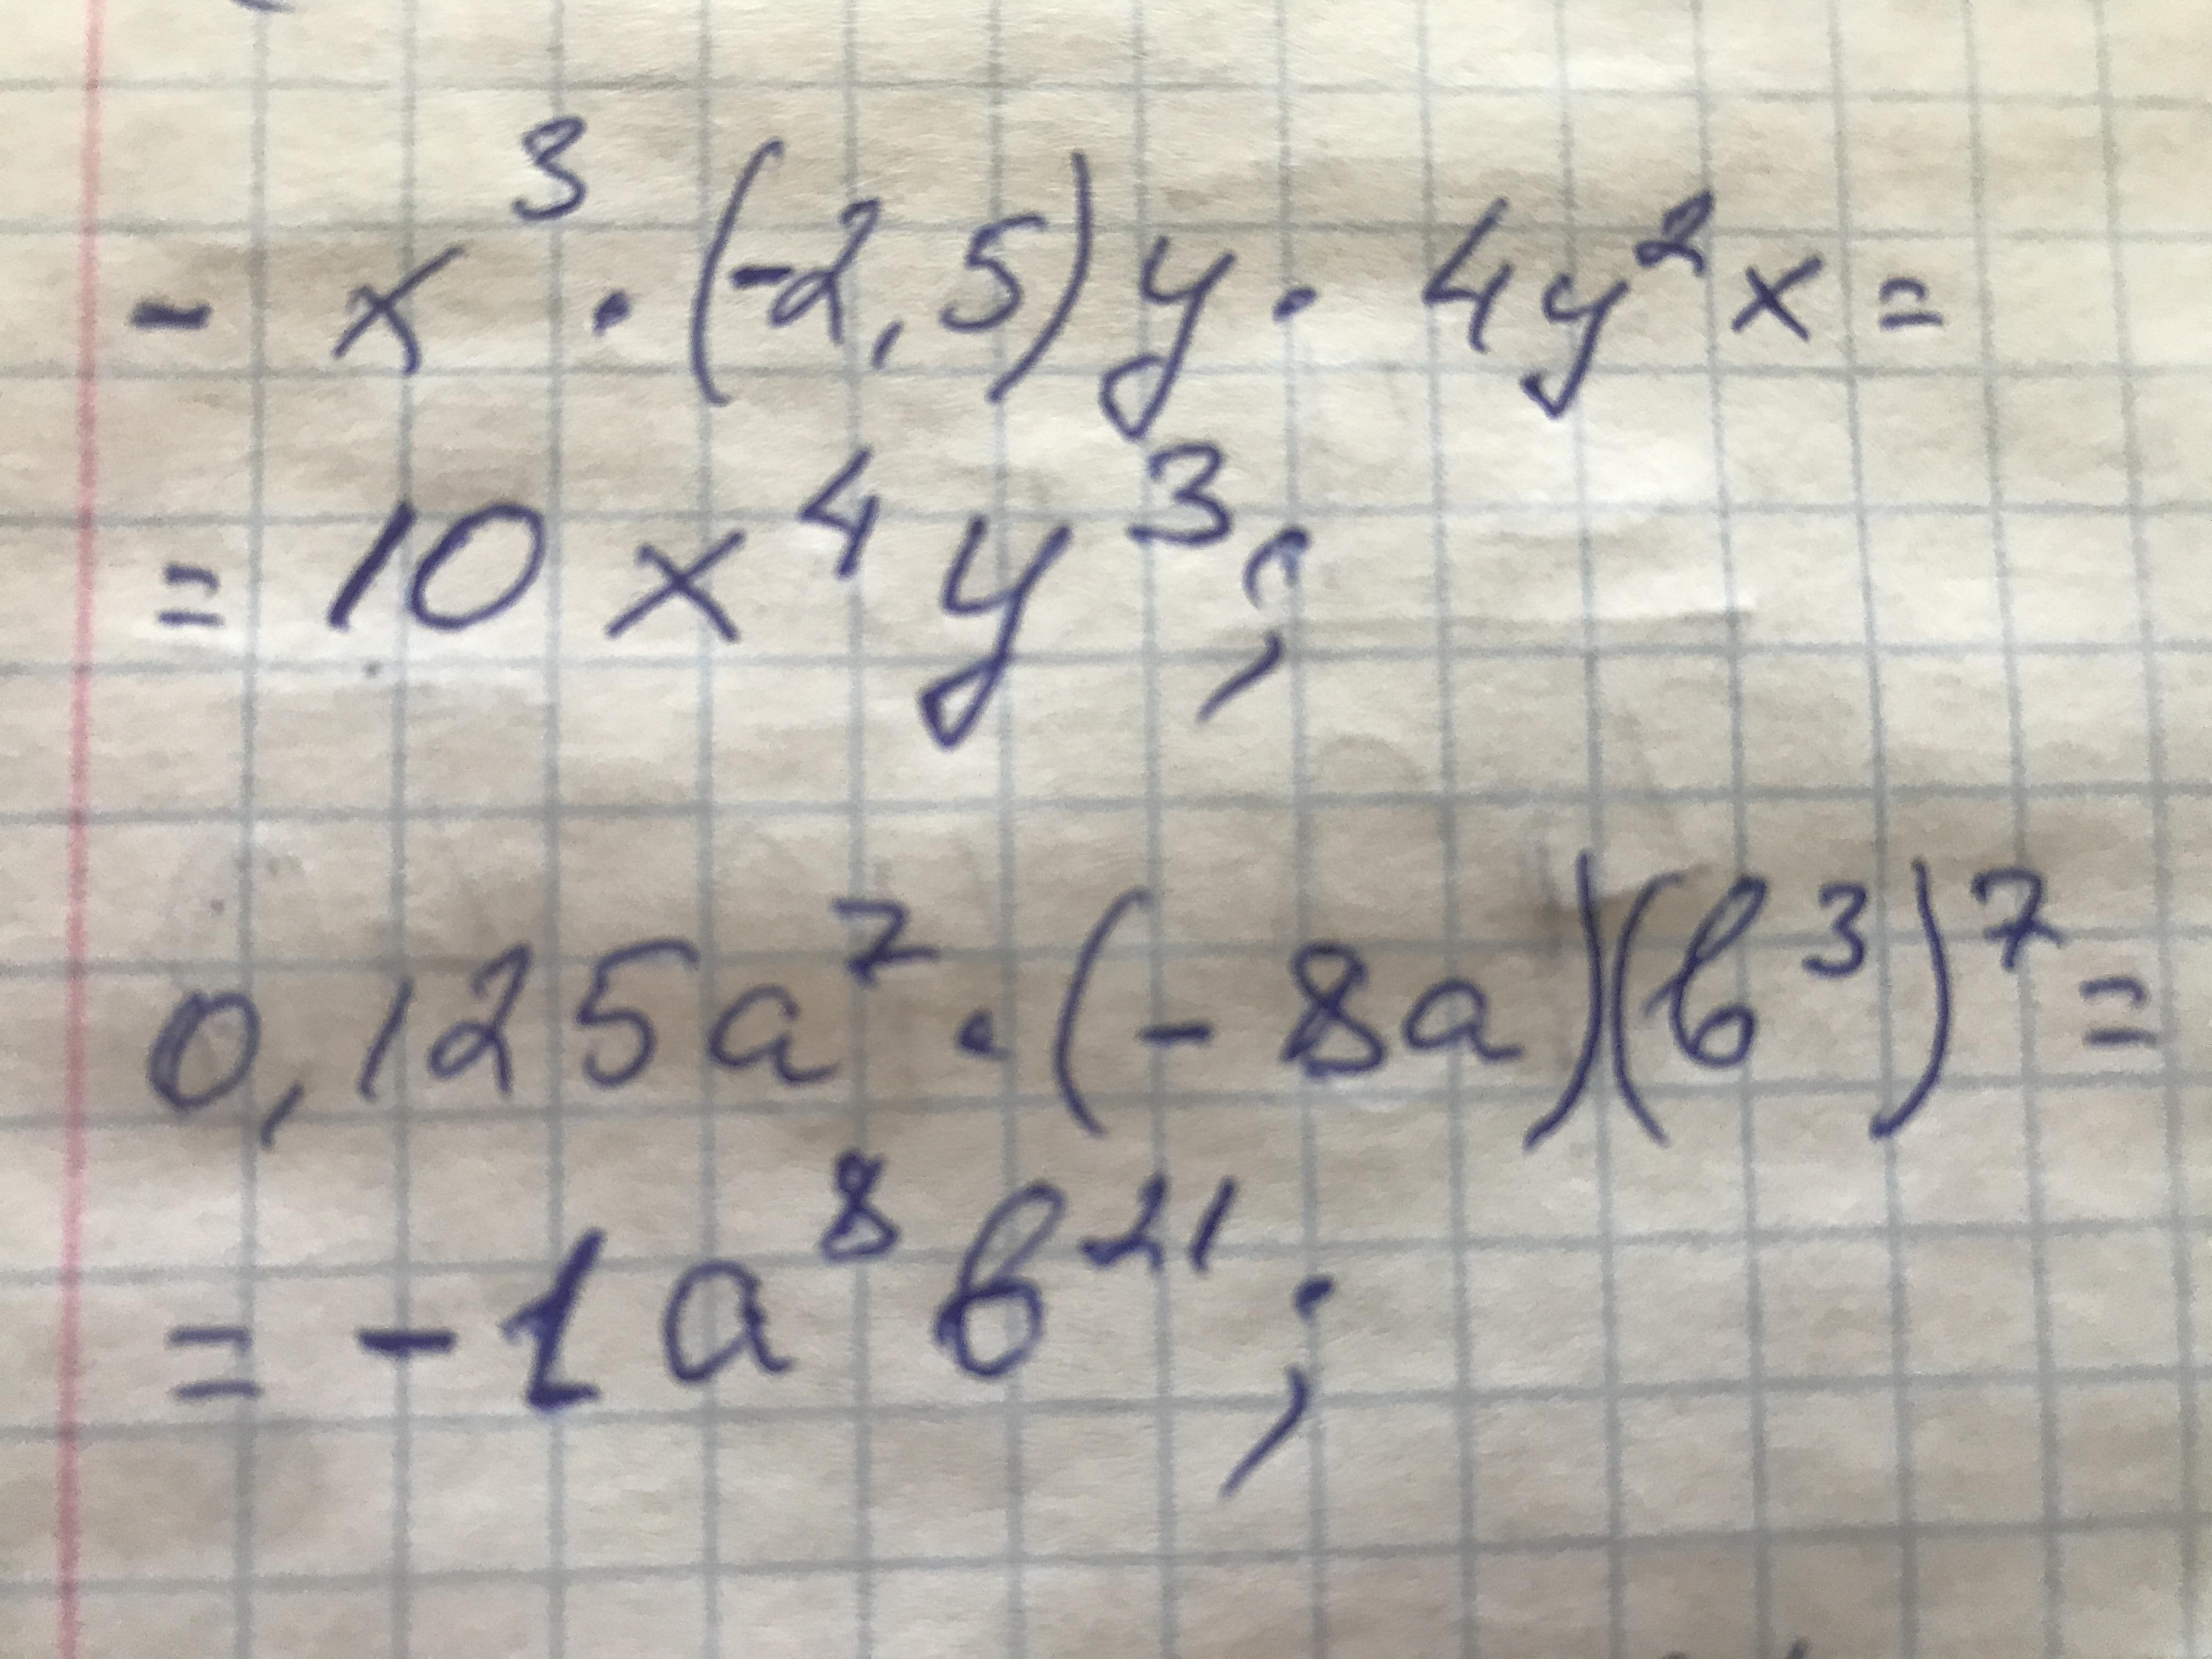 - x³ · (-2,5)y · 4y²x =
= 10 x⁴ y³;
0,125a⁷ · (- 8a)(b³)⁷ =
= - 1 a⁸ b²¹;